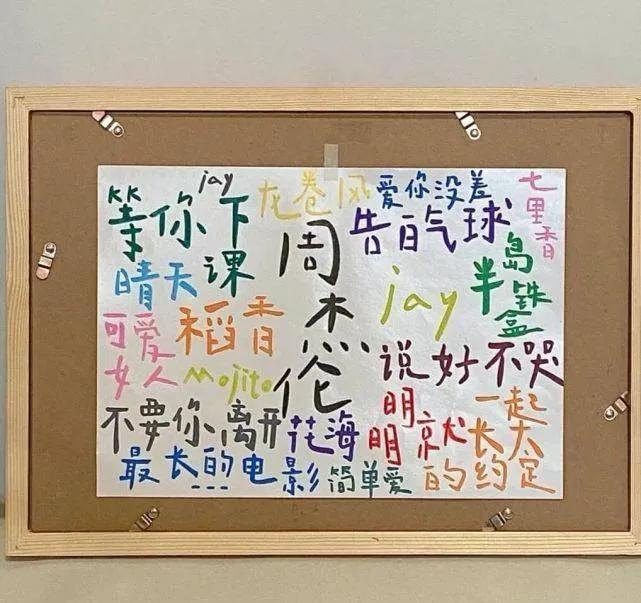 jay
等你下课
龙卷风
爱你没差
七里香
周杰伦
告白气球
晴天
jay
半岛铁盒
可爱女人
稻香
Mojito
说好不哭
不要你离开
花海
明明就
一起长大的约定
最长的电影
简单爱